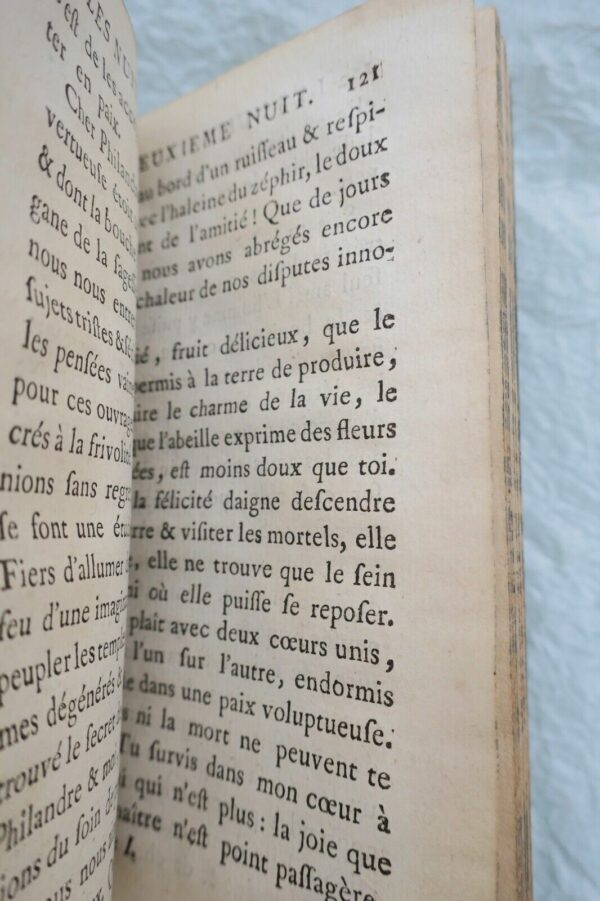 LES NU
est de les acc
ter en paix.
Cher Philand
vertueuse étoi
& dont la bouche
gane de la sages
nous nous entre
sujets tristes &
les pensées vai
pour ces ouvrag
crés à la frivolit
nions sans regr
se font une ét
Fiers d'allumer
feu d'une imagin
peupler les temple
mes dégénérés
trouvé le secret
Philandre & mo
ions du soin d
nous nous
EUXIEME NUIT. 121
au bord d'un ruisseau & respi-
ce l'haleine du zéphir, le doux
nt de l'amitié! Que de jours
nous avons abrégés encore
chaleur de nos disputes inno-
ié, fruit délicieux, que le
permis à la terre de produire,
ire le charme de la vie, le
que l'abeille exprime des fleurs
ées, est moins doux que toi.
la félicité daigne descendre
rre & visiter les mortels, elle
, elle ne trouve que le sein
ni où elle puisse se reposer.
plaît avec deux cœurs unis,
l'un sur l'autre, endormis
e dans une paix voluptueuse.
s ni la mort ne peuvent te
Tu survis dans mon cœur à
i qui n'est plus: la joie que
aître n'est point passagère
I,